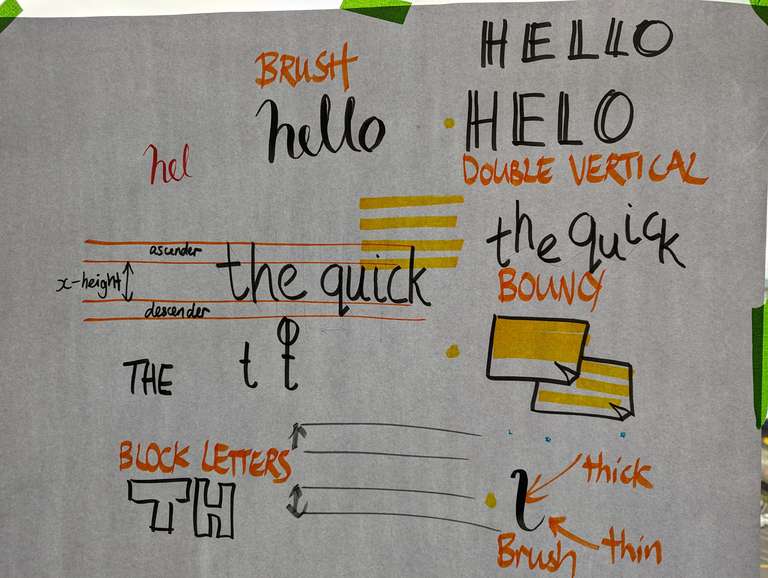 HELLO
BRUSH
hello
HELO
hel
DOUBLE VERTICAL
the quick
ascender
the quick
x-height
BOUNCY
descender
THE
t t
BLOCK LETTERS
TH
l
thick
Brush
thin